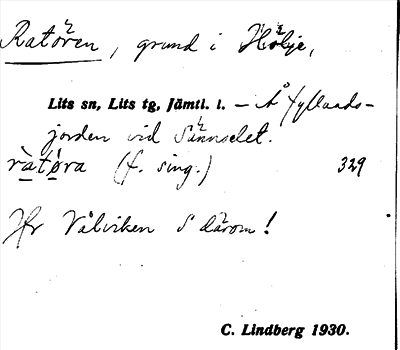 Ratören, grund i Hölje,
Lits sn, Lits tg, Jämtl. l. – Å Fyllands-
jorden vid Sännselet.
ràtø̀ra (f. sing.) 329
Jfr Vålviken S därom!
C. Lindberg 1930.